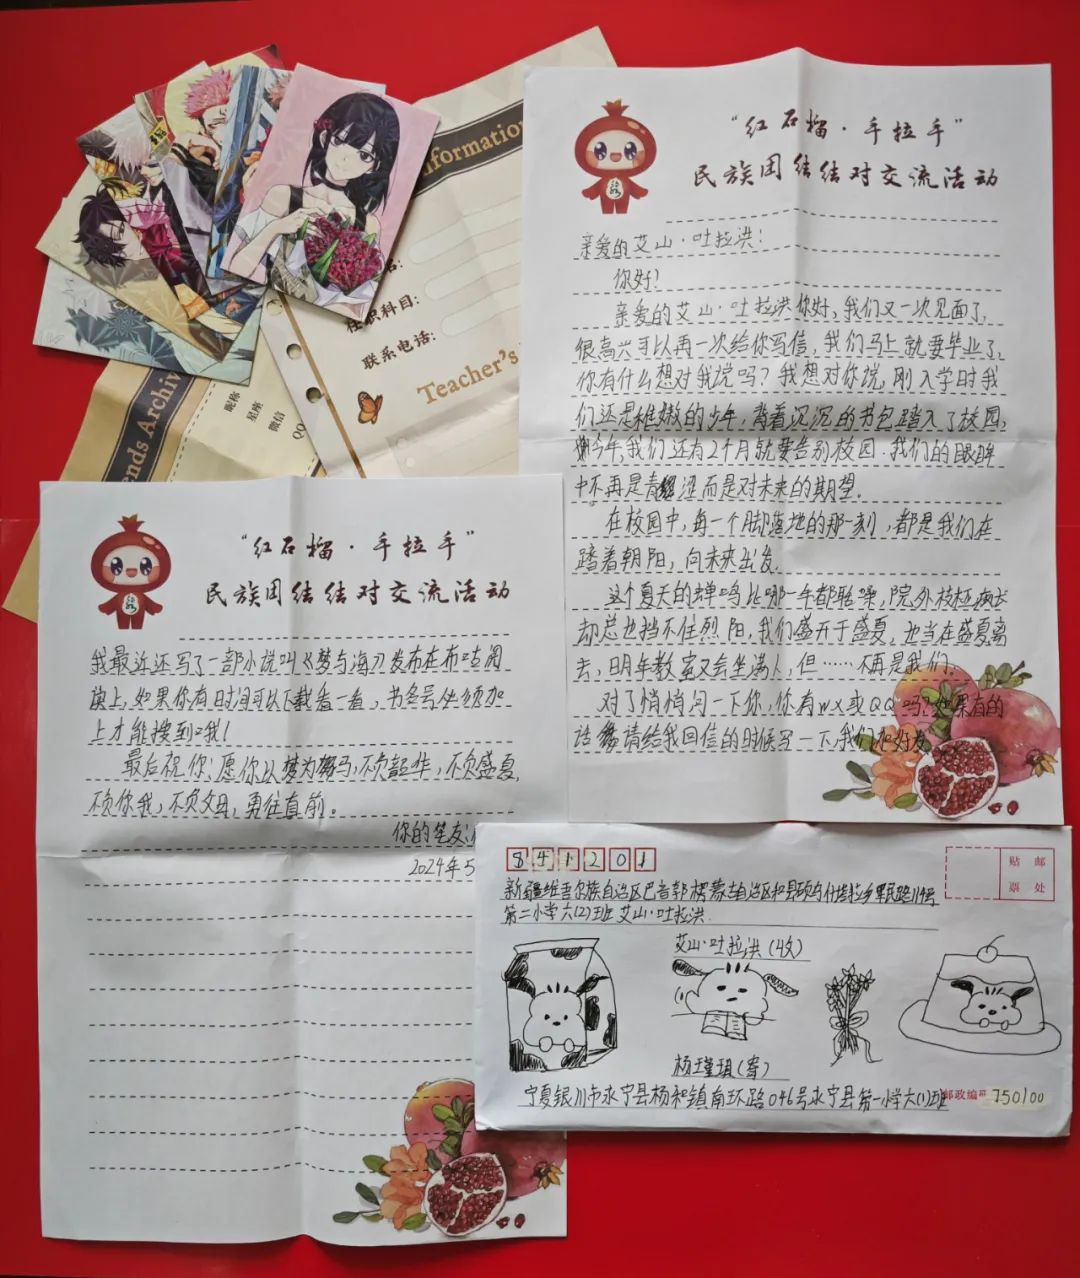 Information
任职科目:
联系电话:
Teacher's
ends Archiv
昵称
星座
微信
QQ
“红石榴·手拉手”
民族团结结对交流活动
亲爱的艾山·吐拉洪!
你好!
亲爱的艾山·吐拉洪你好,我们又一次见面了,
很高兴可以再一次给你写信,我们马上就要毕业了,
你有什么想对我说吗?我想对你说,刚入学时我
们还是稚嫩的少年,背着沉沉的书包踏入了校园,
今年,我们还有2个月就要告别校园.我们的眼眸
中不再是青涩而是对未来的期望。
在校园中,每一个脚落地的那一刻,都是我们在
踏着朝阳,向未来出发.
这个夏天的蝉鸣比哪一年都聒噪,院外枝桠疯长
却总也挡不住烈阳,我们盛开于盛夏,也当在盛夏离
去,明年教室又会坐满人,但……不再是我们。
对了悄悄问一下你,你有wx或QQ吗?如果有的
话请给我回信的时候写一下,我们加好友
“红石榴·手拉手”
民族团结结对交流活动
我最近还写了一部小说叫《梦与海》发布在布咕阅
读上,如果你有时间可以下载看一看,书名号必须加
上才能搜到哦!
最后祝你:愿你以梦为马,不负韶华,不负盛夏,
不负你我,不负父母,勇往直前。
你的笔友:
2024年5
841201
贴邮
票处
新疆维吾尔族自治区巴音郭楞蒙古自治区和县硕乌什塔拉乡军民路114号
第二小学六(2)班艾山·吐拉洪
艾山·吐拉洪(收)
杨瑾琪(寄)
宁夏银川市永宁县杨和镇南环路046号永宁县第一小学六(1)班
邮政编码 750100